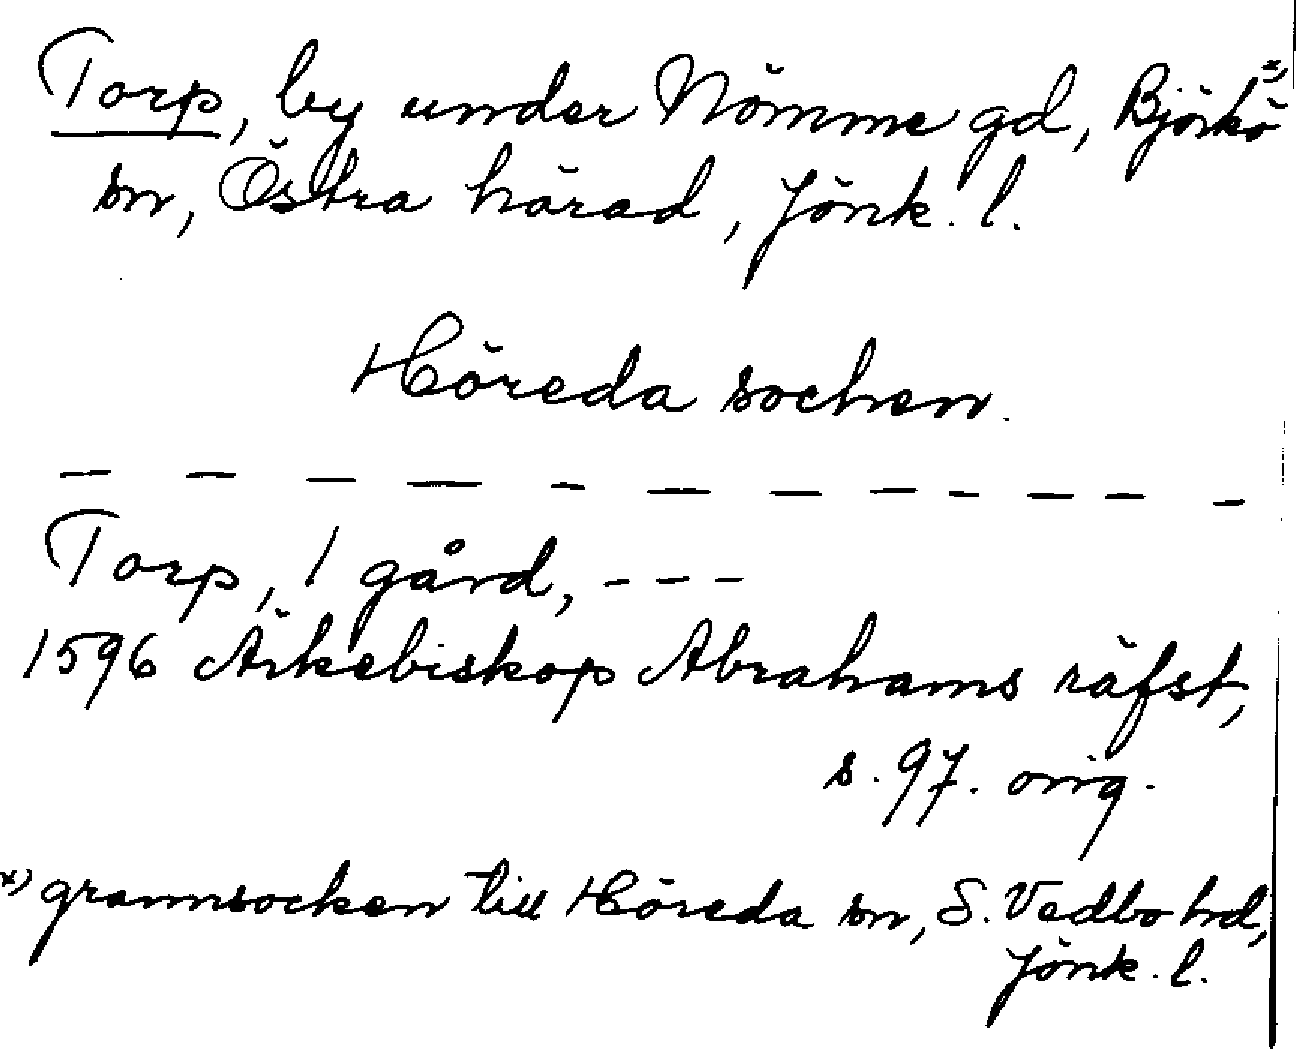 Torp, by under Nömme gd, Björkö x)
sn, Östra härad, Jönk. l.
Höreda socken.
— — — — — — — — — — — —
Torp, 1 gård, - - -
1596 Ärkebiskop Abrahams räfst,
s. 97. orig.
x) grannsocken till Höreda sn, S. Vedbo hd,
Jönk. l.